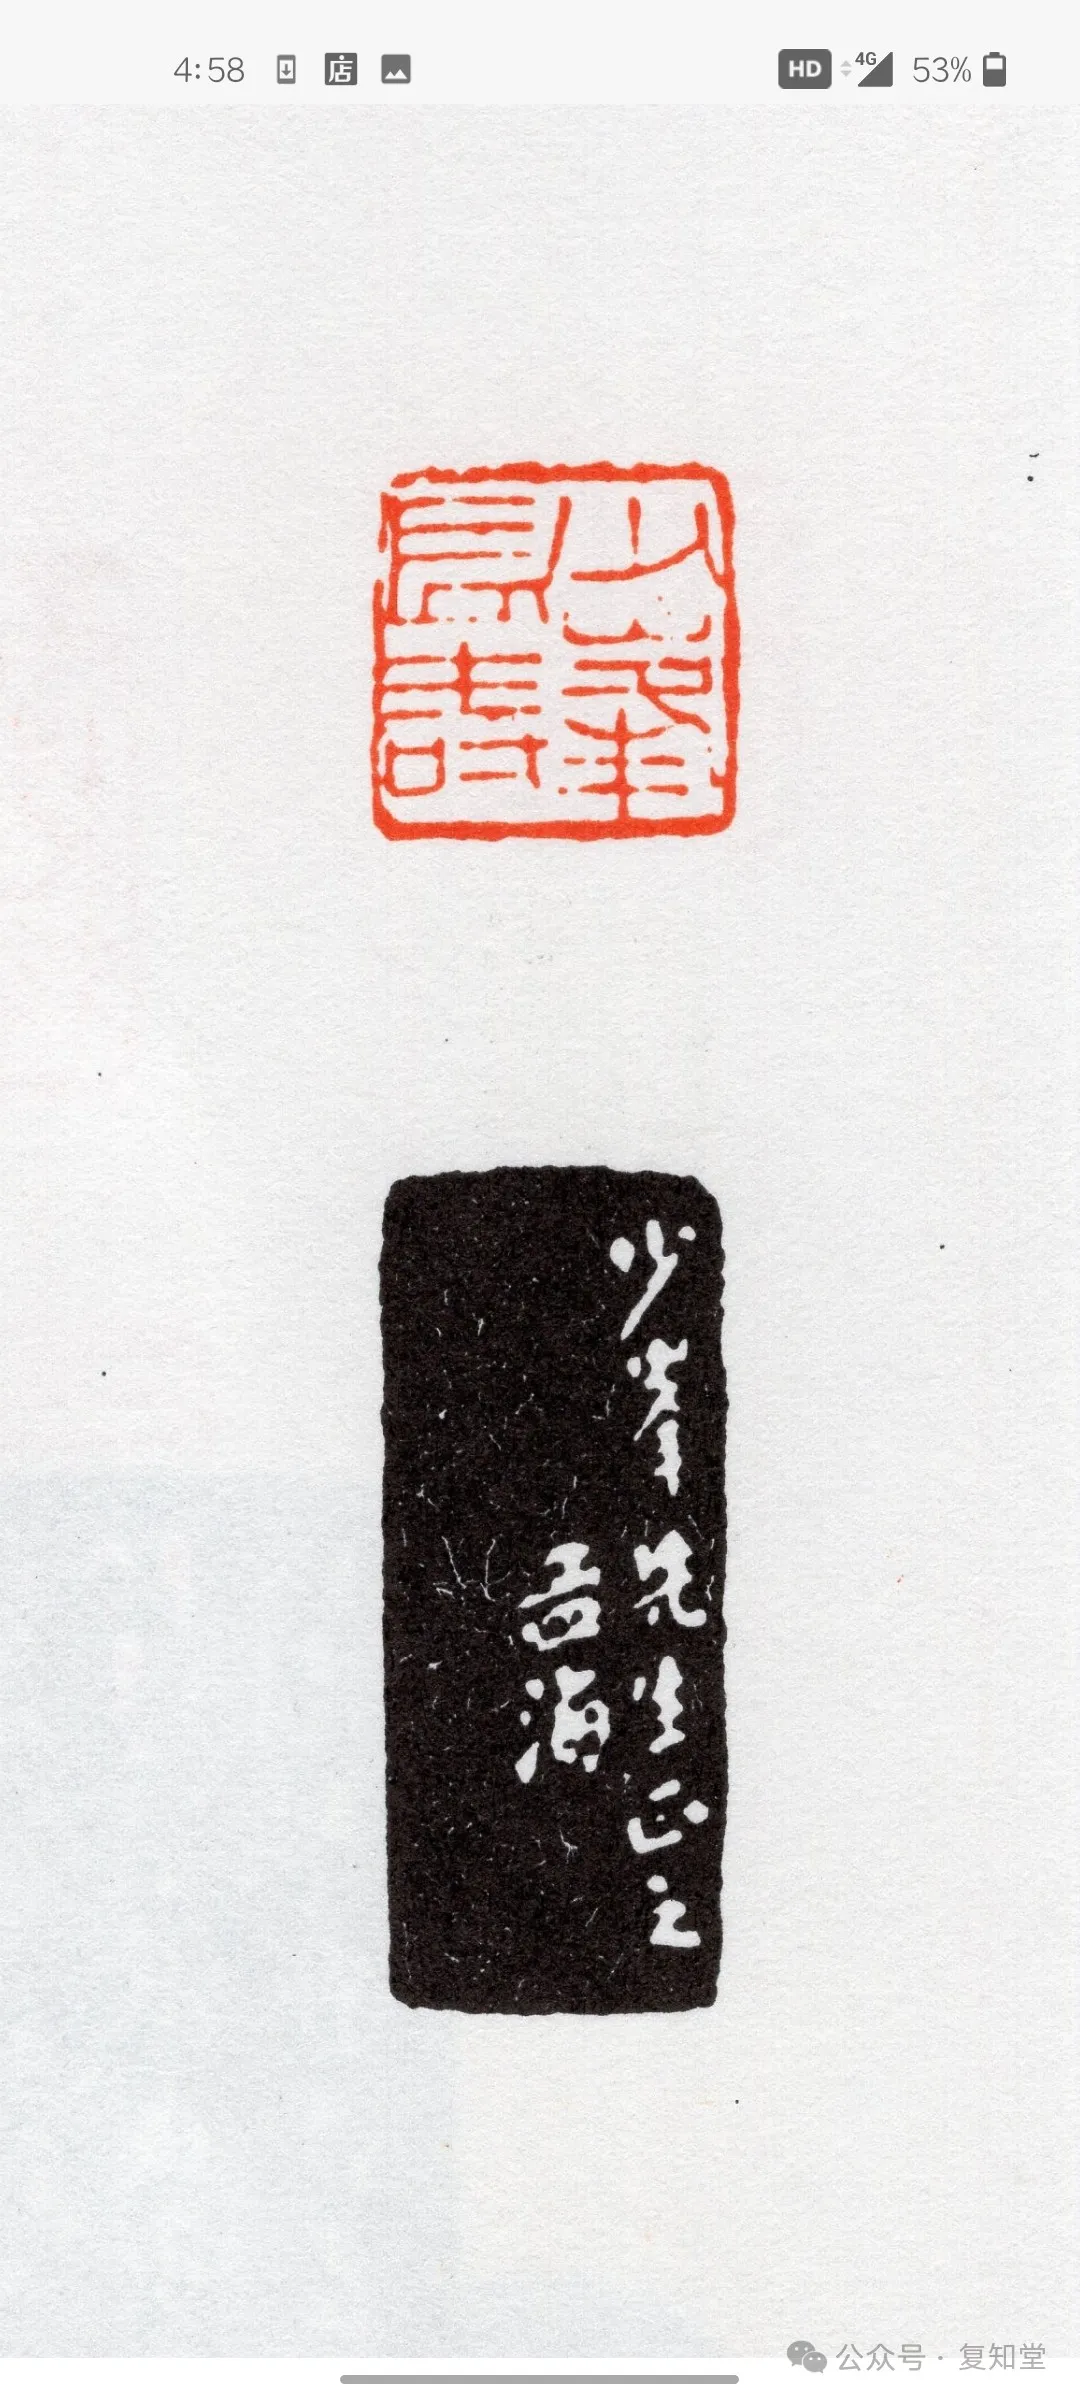 4:58 店 HD 4G 53%
少峯
長壽
少峯先生正之
吾海
公众号 · 复知堂